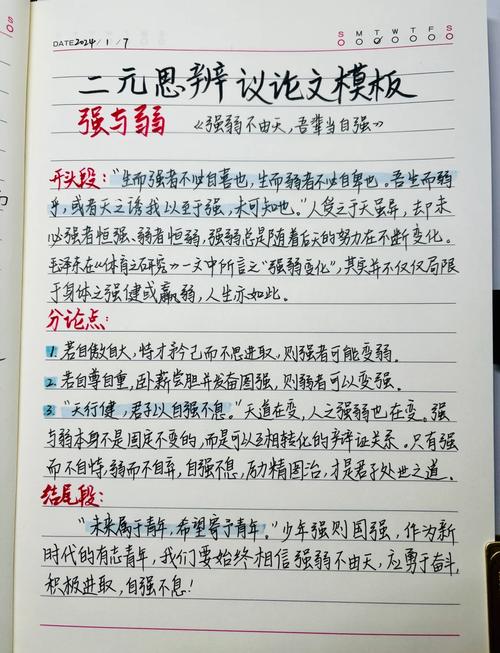 S M T W T F S
DATE 2024 / 1 / 7
二元思辨议论文模板
强与弱 《强弱不由天，吾辈当自强》
开头段："生而强者不必自喜也，生而弱者不必自卑也。吾生而弱
乎，或者天之诱我以至于强，未可知也。"人受之于天虽异，去却未
必强者恒强、弱者恒弱，强弱总是随着后天的努力在不断变化。
毛泽东在《体育之研究》一文中所言之"强弱变化"，其实并不仅仅局限
于身体之强健或羸弱，人生亦如此。
分论点：
1. 若自傲自大，恃才矜己而不思进取，则强者可能变弱。
2. 若自尊自重，卧薪尝胆并发奋图强，则弱者可以变强。
3. "天行健，君子以自强不息。"天道在变，人之强弱也在变。强
与弱本身不是固定不变的，而是可以互相转化的辩证关系。只有强
而不自恃，弱而不自弃，自强不息，励精图治，才是君子处世之道。
结尾段：
"未来属于青年，希望寄予青年。"少年强则国强，作为新
时代的有志青年，我们要始终相信强弱不由天，应勇于奋斗，
积极进取，自强不息！